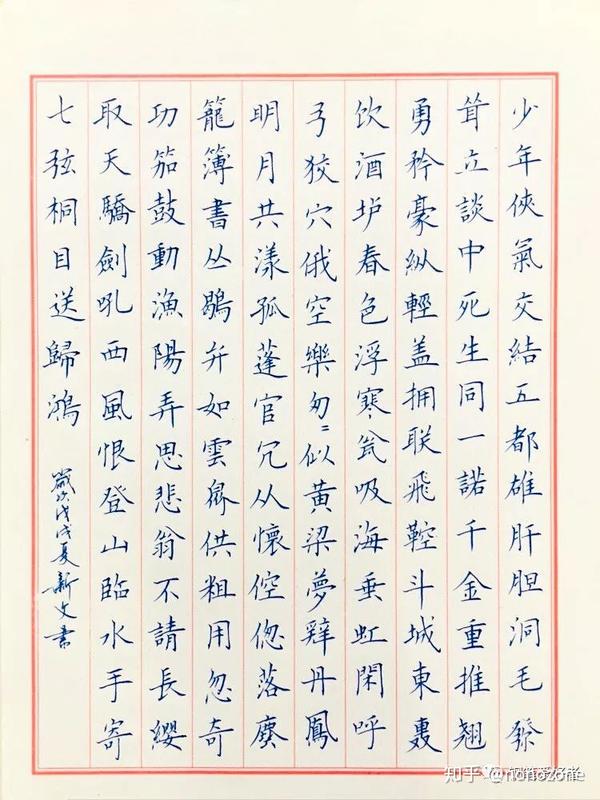 少年俠氣交結五都雄肝胆洞毛發
耸立談中死生同一諾千金重推翘
勇矜豪縱輕盖拥联飛鞚斗城東轰
饮酒垆春色浮寒瓮吸海垂虹閑呼
弓狡穴俄空樂匆〻似黄梁夢辤丹鳳
明月共漾孤蓬官冗从懷倥偬落塵
籠簿書丛鶡弁如雲衆供粗用忽奇
功笳鼓動漁陽弄思悲翁不請長纓
取天驕劍吼西風恨登山臨水手寄
七弦桐目送歸鴻
歲次戊戌夏新文書
知乎 @nonozone